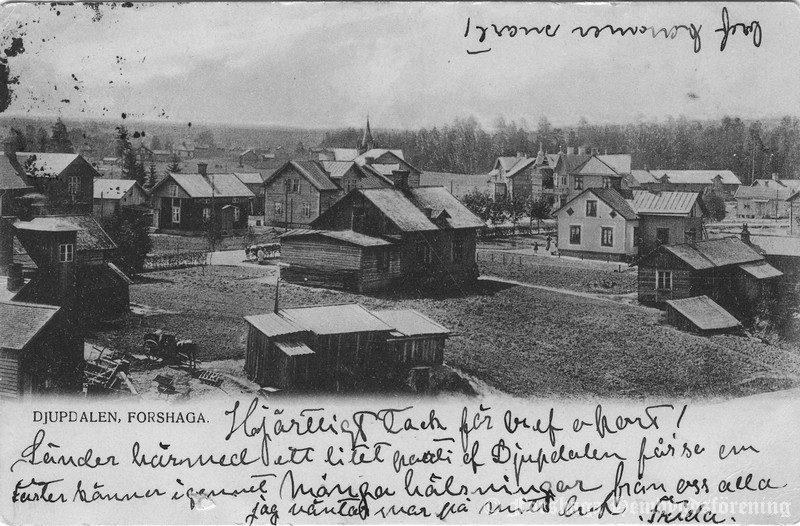 bref kommer snart!
DJUPDALEN, FORSHAGA.
Hjärtligt Tack för bref o kort!
Sänder härmed ett litet parti af Djupdalen får se om
känner igen Många hälsningar från oss alla
jag väntar svar på mitt bref. Frida.
Hembygdsförening